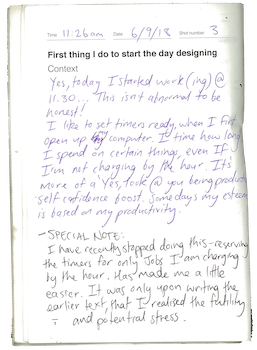 Time 11:26am Date 6/9/18 Shot number 3
First thing I do to start the day designing
Context
Yes, today I started work (ing) @
11.30... This isn't abnormal to be
honest!
I like to set timers ready when I first
open up my computer. I time how long
I spend on certain things, even if
I'm not charging by the hour. It's
more of a Yes, look @ you being product
self confidence boost. Some days my esteem
is based on my productivity.
- SPECIAL NOTE:
I have recently stopped doing this - reserving
the timers for only jobs I am charging
by the hour. Has made me a little
easier. It was only upon writing the
earlier text, that I realised the futility
and potential stress.